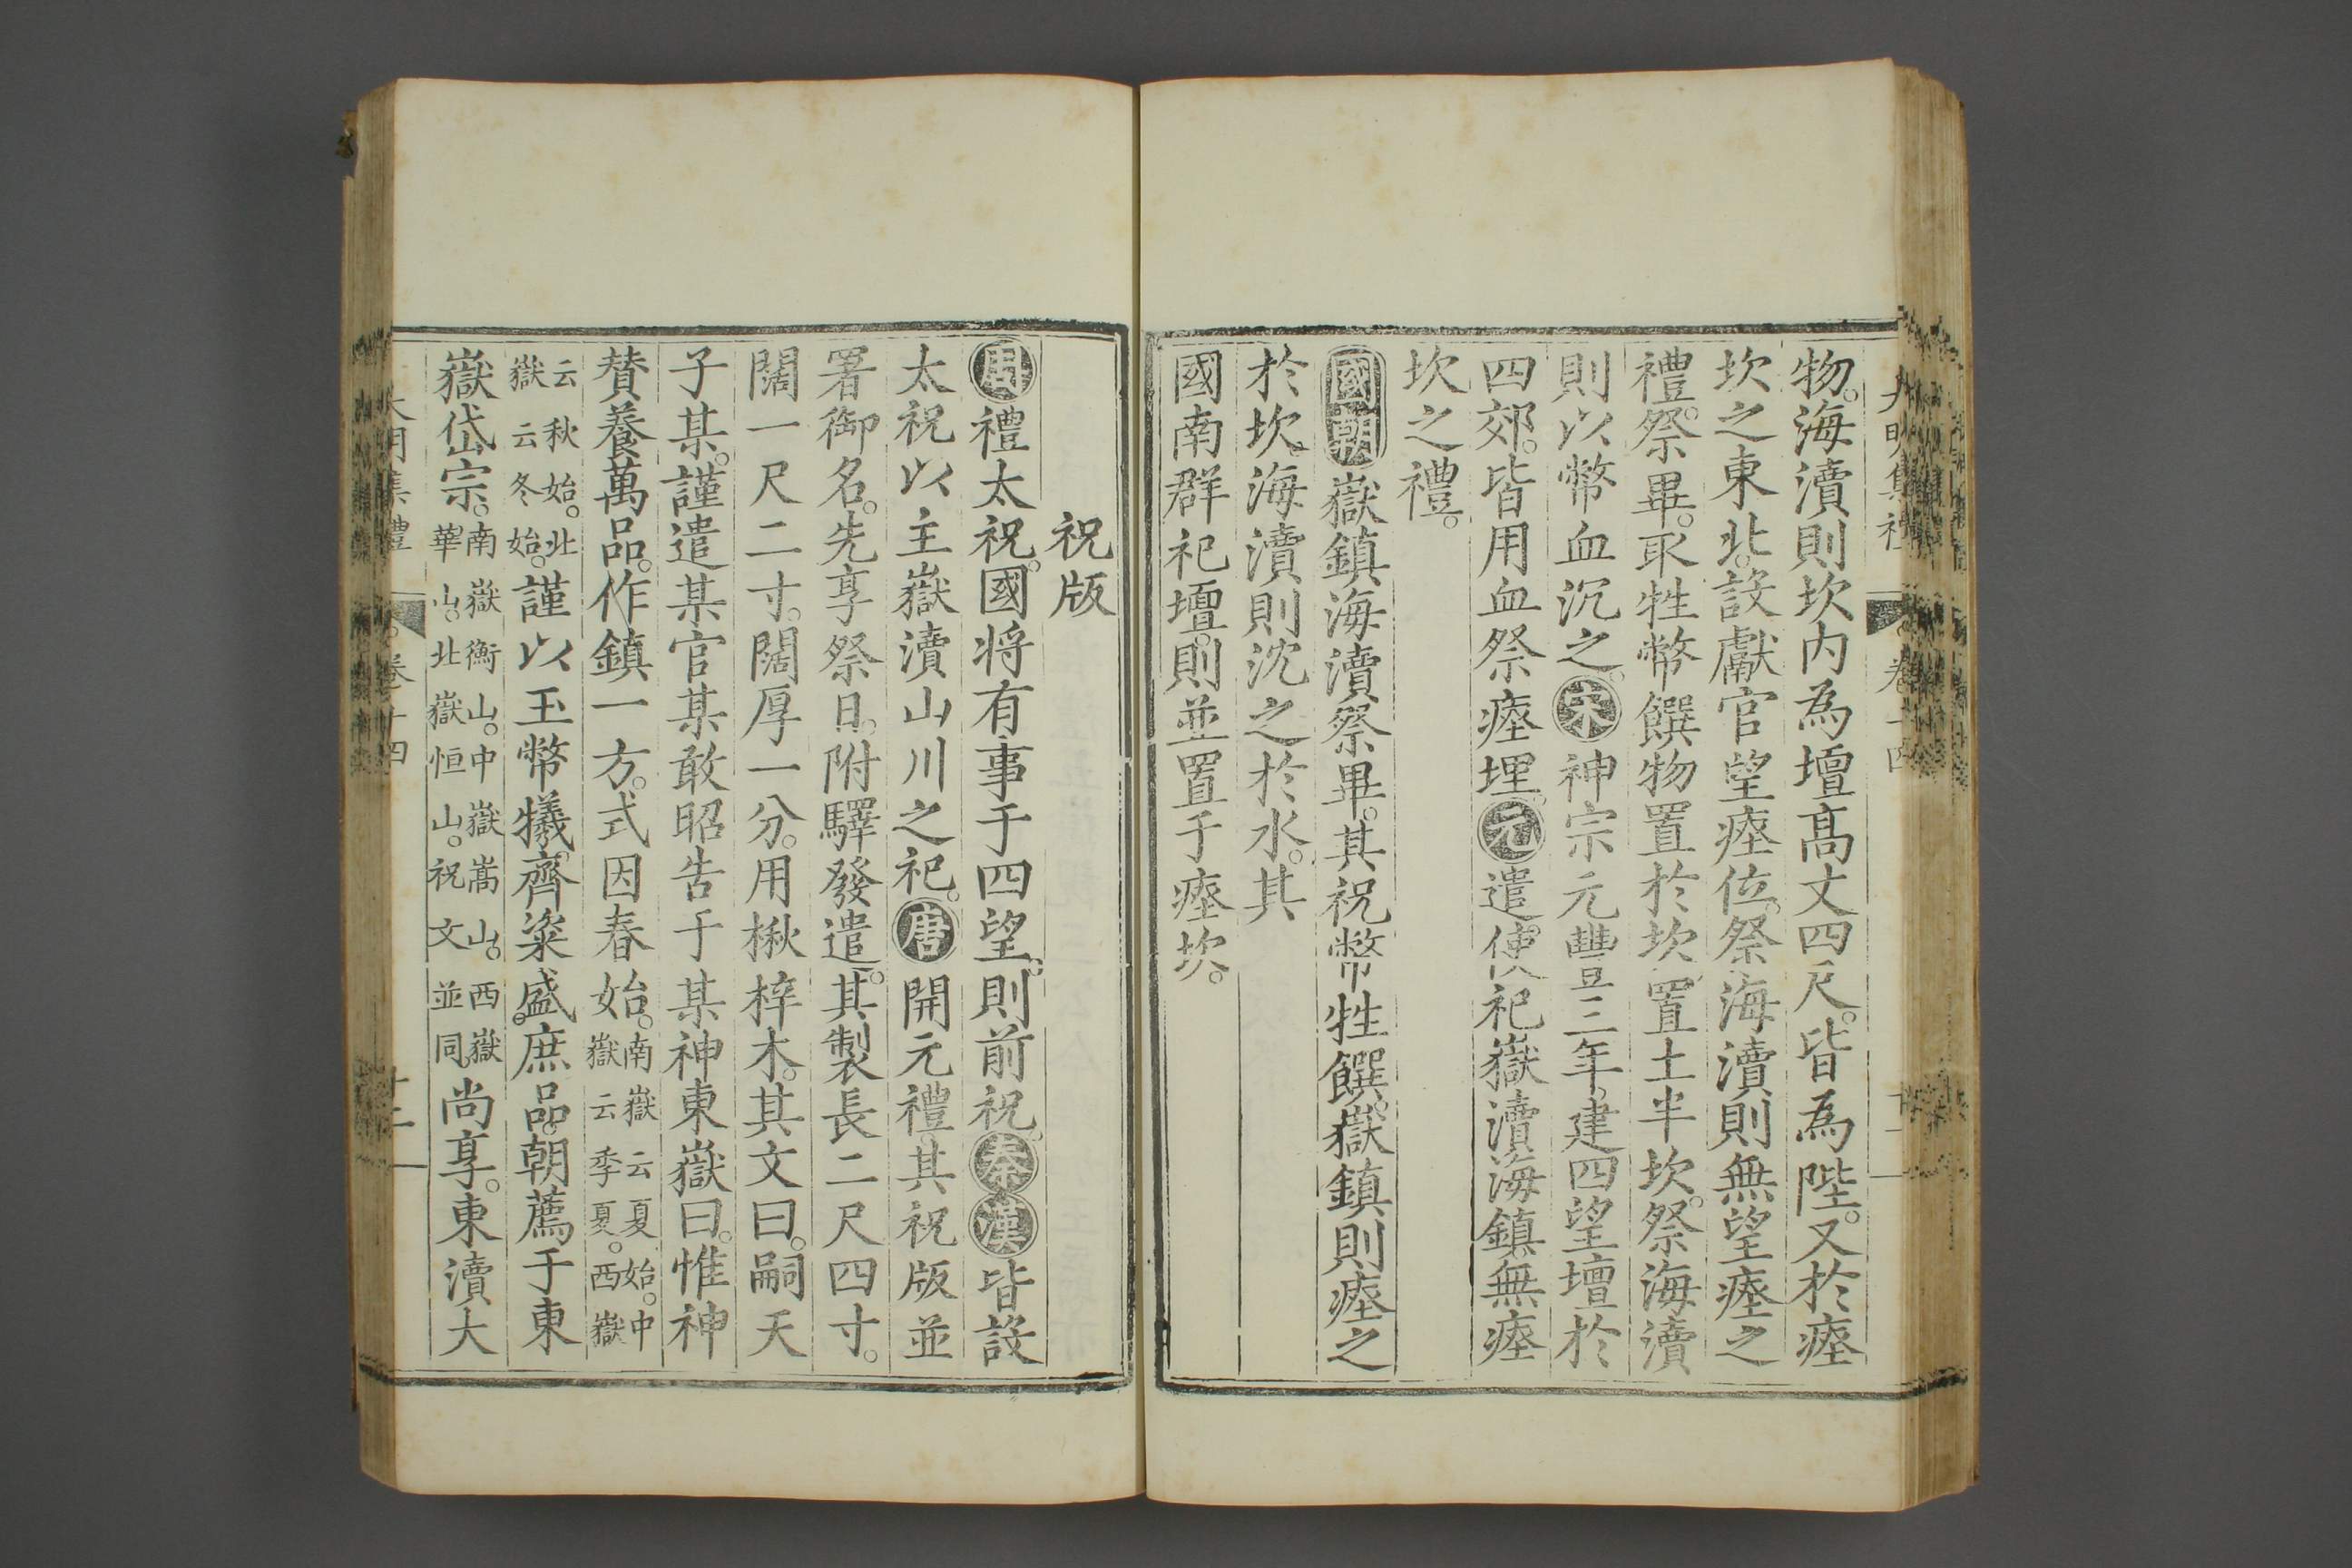 大明集禮 卷十四
物。海瀆則坎内為壇高丈四尺。皆為陛。又於瘞
坎之東北。設獻官望瘞位。祭海瀆則無望瘞之
禮。祭畢。取牲幣饌物置於坎置土半坎。祭海瀆
則以幣血沉之。宋神宗元豐三年。建四望壇於
四郊。皆用血祭瘞埋。元遣使祀嶽瀆海鎮無瘞
坎之禮。
國朝嶽鎮海瀆祭畢。其祝幣牲饌。嶽鎮則瘞之
於坎。海瀆則沈之於水。其
國南群祀壇。則並置于瘞坎。
祝版
周禮太祝。國将有事于四望。則前祝。秦漢皆設
太祝以主嶽瀆山川之祀。唐開元禮。其祝版並
署御名。先享祭日。附驛發遣。其製長二尺四寸。
闊一尺二寸。闊厚一分。用楸梓木。其文曰。嗣天
子某。謹遣某官某敢昭告于某神東嶽曰。惟神
賛養萬品。作鎮一方。式因春始。南嶽云夏始。中嶽云季夏。西嶽
云秋始。北嶽云冬始。謹以玉幣犧齊粢盛。庶品。朝薦于東
嶽岱宗。南嶽衡山。中嶽嵩山。西嶽華山。北嶽恒山。祝文並同。尚享。東瀆大
大明集禮 卷十四 十二